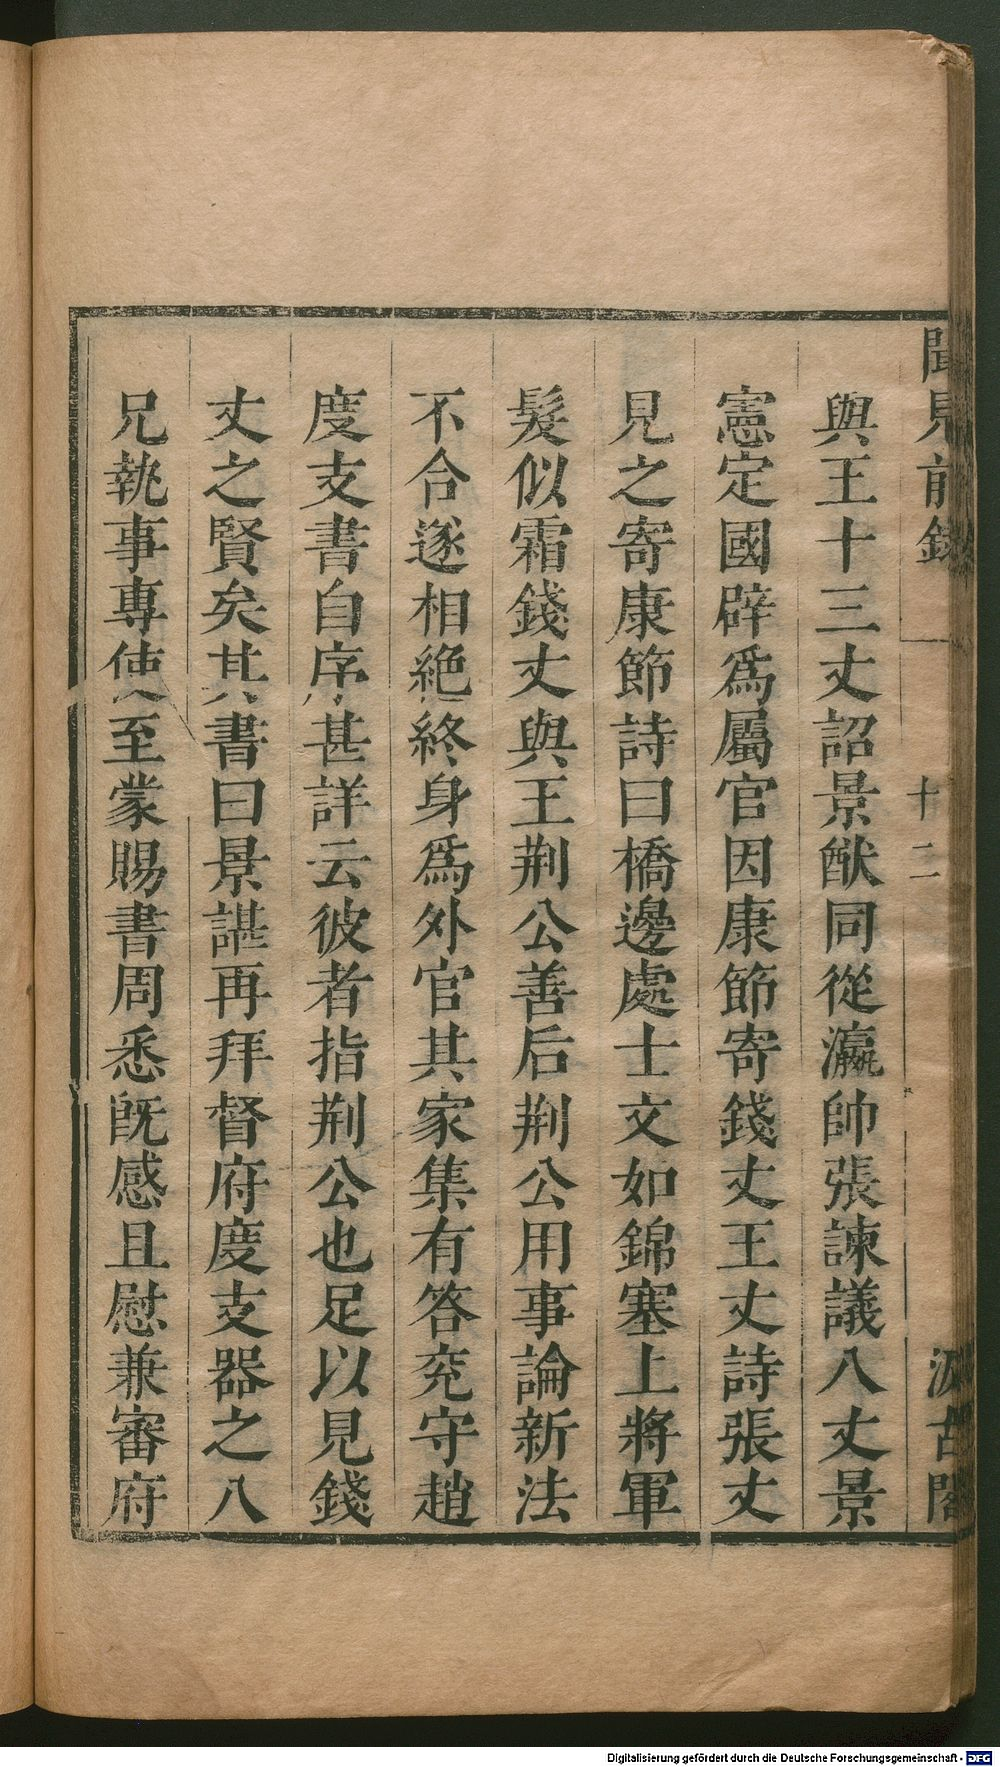 聞見前錄 十二 汲古閣
與王十三丈詔景猷同從瀛帥張諫議八丈景
憲定國辟爲屬官因康節寄錢丈王丈詩張丈
見之寄康節詩曰橋邊處士文如錦塞上將軍
髮似霜錢丈與王荆公善后荆公用事論新法
不合遂相絶終身爲外官其家集有答兖守趙
度支書自序甚詳云彼者指荆公也足以見錢
丈之賢矣其書曰景諶再拜督府度支器之八
兄執事專使至蒙賜書周悉旣感且慰兼審府
Digitalisierung gefördert durch die Deutsche Forschungsgemeinschaft - DFG